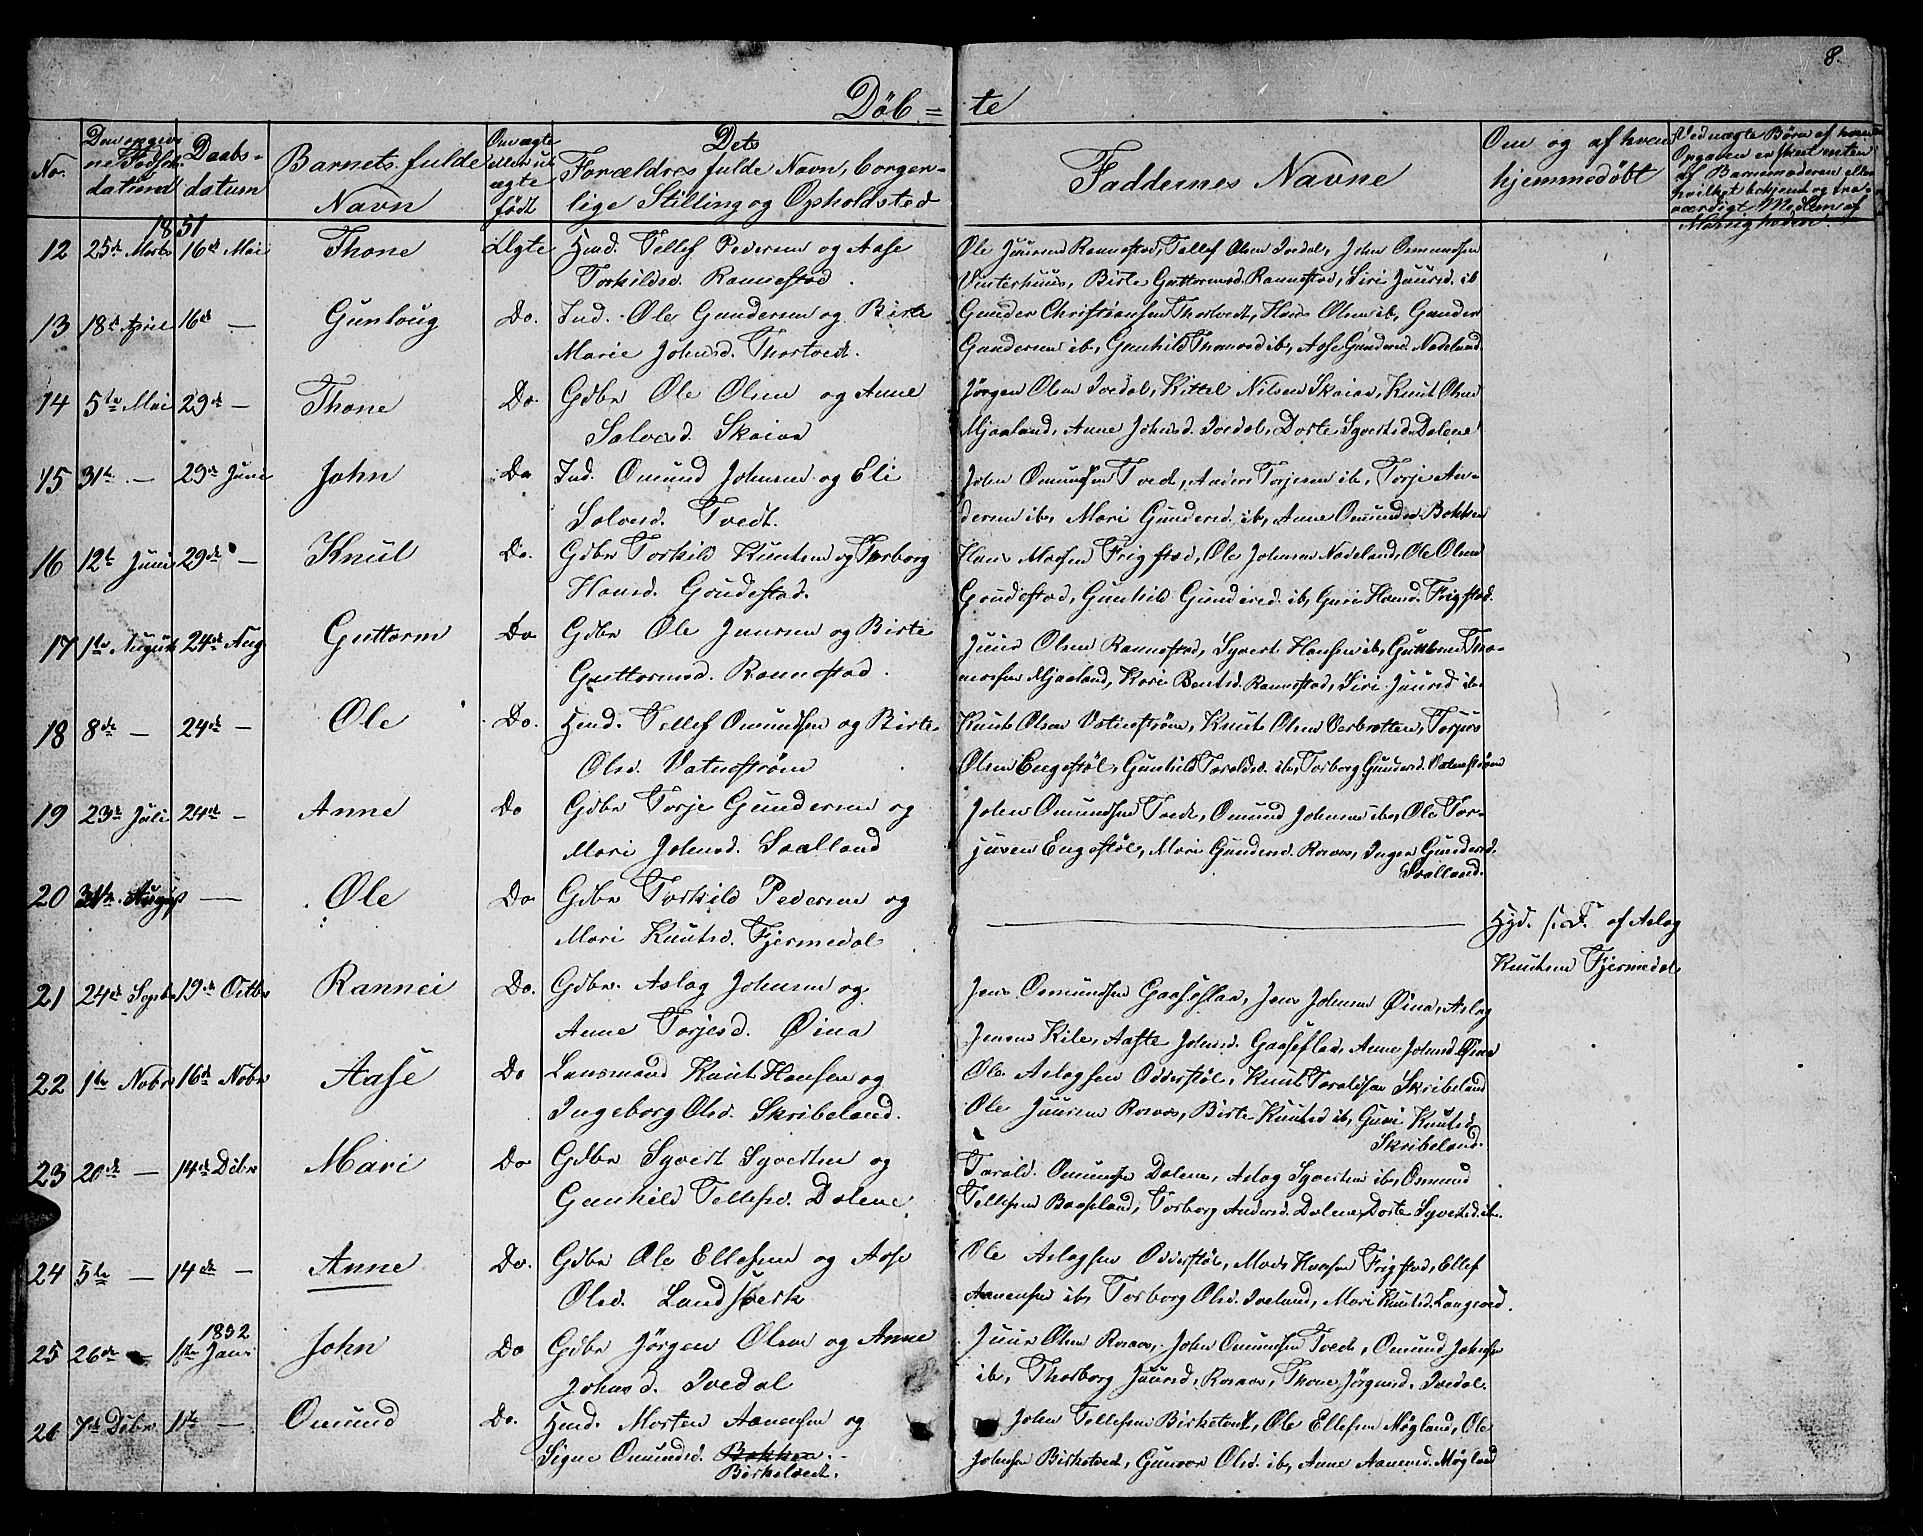 8.
Döb = te
No.
Den opgiv
ne Födsels
datum
Daabs=
datum
Barnets fulde
Navn
Om ægte
eller u
ægte
født
Dets
Forældres fulde Navn, borger-
lige Stilling og Opholdsted
Faddernes Navne
Om og af hvem
hjemmedöbt
Ved uægte Börn af hvem
Opgaven er skeet enten
af Barnemoderen eller
hvilket bekjent og tro-
værdigt Medlem af
Menigheden.
1851
12 25de Marts 16de Mai Thone Ægte Hmd. Tellef Pedersen og Aase
Torkildsd. Ramsestad.
Ole Juursen Rannestad, Tellef Olsen Ivedal, John Osmundsen
Vinterhuus, Birte Guttormsd. Rannestad, Siri Juursd. ib
13 18de April 16de — Gunloug Do. Ind. Ole Gundersen og Birte
Marie Johnsd. Thortvedt.
Gunder Christiansen Thortvedt, Hans Olsen ib, Gunder
Gundersen ib, Gunhild Thomasd ib, Aase Gundersd. Nateland
14 5te Mai 29de — Thone Do Gdbr Ole Olsen og Anne
Salvesd. Skaiaa
Jørgen Olsen Ivedal, Kittel Nilsen Skaiaa, Knut Olsen
Mjaaland, Anne Johnsd. Ivedal, Dorte Syvertsd. Dalene
15 31te — 29de Juni John Do Ind. Omund Johnsen og Eli
Salvesd. Tvedt.
John Omundsen Tvedt, Anders Torjesen ib, Torje An-
dersen ib, Mari Gundersd. ib, Anne Omundsd Bakken
16 12te Juni 29de — Knut Do. Gdbr Torkild Knutsen og Torborg
Hansd. Goudestad.
Hans Madsen Frigstad, Ole Johnsen Nateland, Ole Olsen
Goudestad, Gunhild Gundersd. ib, Guri Hansd. Frigstad.
17 1te August 24de Aug Guttorm Do Gdbr Ole Juursen og Birte
Guttormsd. Rannestad.
Juur Olsen Rannestad, Syvert Hansen ib, Guttorm Tho-
massen Mjaaland, Kari Bentsd. Rannestad, Siri Juursd ib
18 8de — 24de — Ole Do. Hmd. Tellef Omundsen og Birte
Olsd. Vatnestrøm
Knut Olsen Vatnestrøm, Knut Olsen Verbrotten, Torjus
Olsen Engestöl, Gunhild Taraldsd. ib, Torborg Gundersd. Vatnestrøm
19 23de Juli 24de — Anne Do Gdbr Torje Gundersen og
Mari Johnsd. Saalland
John Omundsen Tvedt, Omund Johnsen ib, Ole Tor-
jusen Engestöl, Mari Gundersd. Rosaas, Inger Gundersd.
Saalland.
20 31te August — Ole Do Gdbr Torkild Pedersen og
Mari Knutsd. Fjermedal
Hjd. s. D. af Aslag
Knutsen Fjermedal
21 24de Septbr 19de Octbr Rannei Do. Gdbr. Aslag Johnsen og
Anne Torjesd. Øina
Jens Osmundsen Gaaseflaa, Jens Johnsen Øina, Aslag
Jensen Kile, Aaste Johnsd. Gaaseflaa, Anne Johnsd Øina
22 1te Novbr 16de Novbr Aase Do Lensmand Knut Hansen og
Ingeborg Olsd. Skribeland.
Ole Aslagsen Odderstöl, Knut Taraldsen Skribeland
Ole Juursen Rosaas, Birte Knutsd ib, Guri Knutsd
Skribeland.
23 20de — 14de Decbr Mari Do Gdbr Syvert Syvertsen og
Gunhild Tellefsd. Dalene.
Tarald. Omundsen Dalene, Aslag Syvertsen ib, Osmund
Tellefsen Baaseland, Torborg Andersd. Dalene, Dorte Syvertsd. ib.
24 5te — 14de — Anne Do. Gdbr Ole Ellefsen og Aase
Olsd. Landsverk
Ole Aslagsen Odderstöl, Mads Hansen Frigstad, Ellef
Aanensen ib, Torborg Olsd. Iveland, Mari Knutsd. Langerud.
1852
25 26de — 1ste Jani John Do Gdbr Jörgen Olsen og Anne
Johnsd. Ivedal
Juur Olsen Rosaas, John Omundsen Tvedt, Omund Johnsen
ib, Thorborg Juursd, Rosaas, Thone Jörgensd. Ivedal.
26 7de Decbr 1ste — Omund Do. Hmd. Morten Aanensen og
Signe Omundsd. Bakken.
Birketvedt.
John Tellefsen Birketvedt, Ole Ellefsen Møgland, Ole
Johnsen Birketvedt, Gunvor Olsd. ib, Anne Aanensd. Møgland